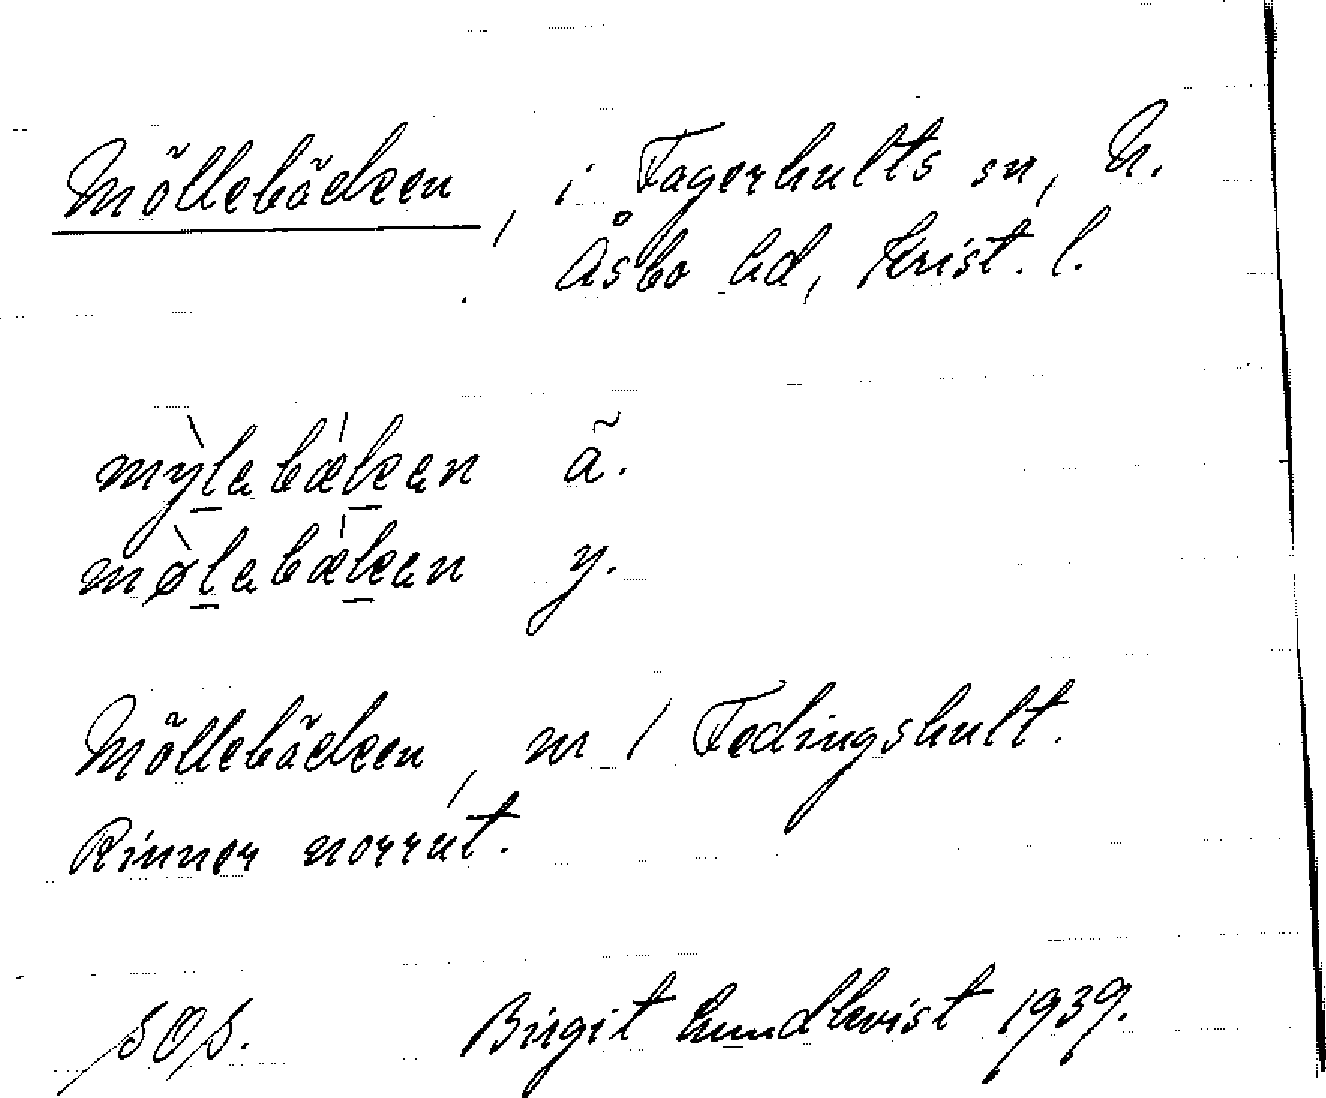 Möllebäcken, i Fagerhults sn, N.
Åsbo hd, Krist. l.
mỳlabækan ä.
mø̀labækan y.
Möllebäcken, nr / Fedingshult.
Rinner norrut.
SOS. Birgit Lundkvist 1939.